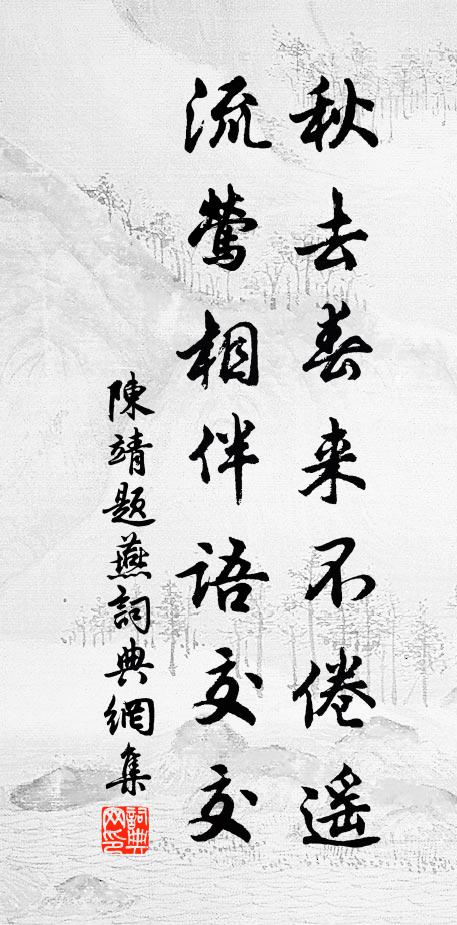 秋去春来不倦遥
流莺相伴语交交
陳靖题燕詞典網集
詞典网印